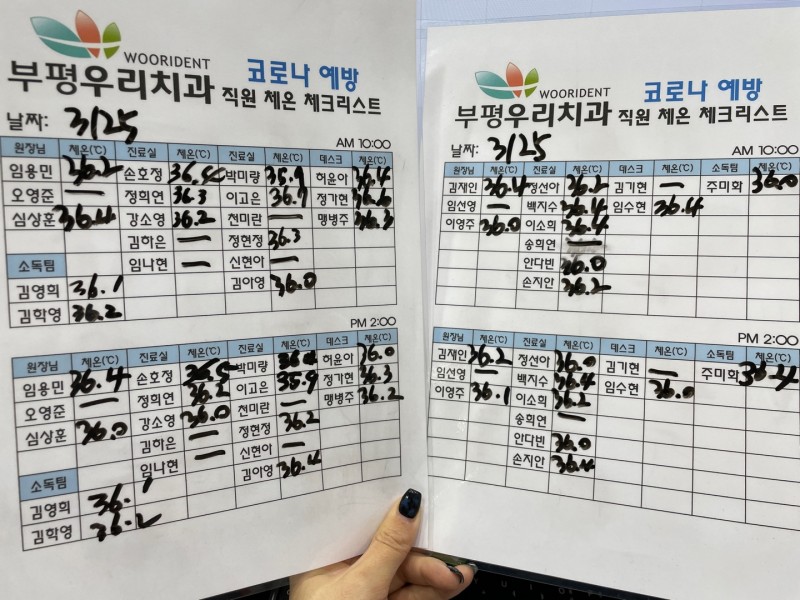 WOORIDENT
부평우리치과 코로나 예방
직원 체온 체크리스트
날짜: 3/25
AM 10:00
원장님 체온(℃) 진료실 체온(℃) 진료실 체온(℃) 데스크 체온(℃)
임용민 36.2 손호정 36.5 박미량 35.9 허윤아 36.4
오영준 — 정희연 36.3 이고은 36.7 정기현 36.6
심상훈 36.4 강소영 36.2 천미란 — 맹병주 36.3
김하은 — 정현정 36.3
소독팀 임나현 — 신현아 —
김영희 36.1 김아영 36.0
김학영 36.2
PM 2:00
원장님 체온(℃) 진료실 체온(℃) 진료실 체온(℃) 데스크 체온(℃)
임용민 36.4 손호정 36.5 박미량 허윤아 36.0
오영준 — 정희연 36.2 이고은 35.9 정기현 36.3
심상훈 36.0 강소영 36.0 천미란 — 맹병주 36.2
김하은 — 정현정 36.2
임나현 — 신현아 —
소독팀 김아영 36.4
김영희 36.1
김학영 36.2
WOORIDENT
부평우리치과 코로나 예방
직원 체온 체크리스트
날짜: 3/25
AM 10:00
원장님 체온(℃) 진료실 체온(℃) 데스크 체온(℃) 소독팀 체온(℃)
김재인 36.4 정선아 36.2 김기현 — 주미화 36.0
임선영 — 백지수 36.4 임수현 36.4
이영주 36.0 이소희 36.4
송희연 —
안다빈 36.0
손지안 36.2
PM 2:00
원장님 체온(℃) 진료실 체온(℃) 데스크 체온(℃) 소독팀 체온(℃)
김재인 36.2 정선아 36.0 김기현 — 주미화 36.4
임선영 — 백지수 36.4 임수현 36.0
이영주 36.1 이소희 36.2
송희연 —
안다빈 36.0
손지안 36.4